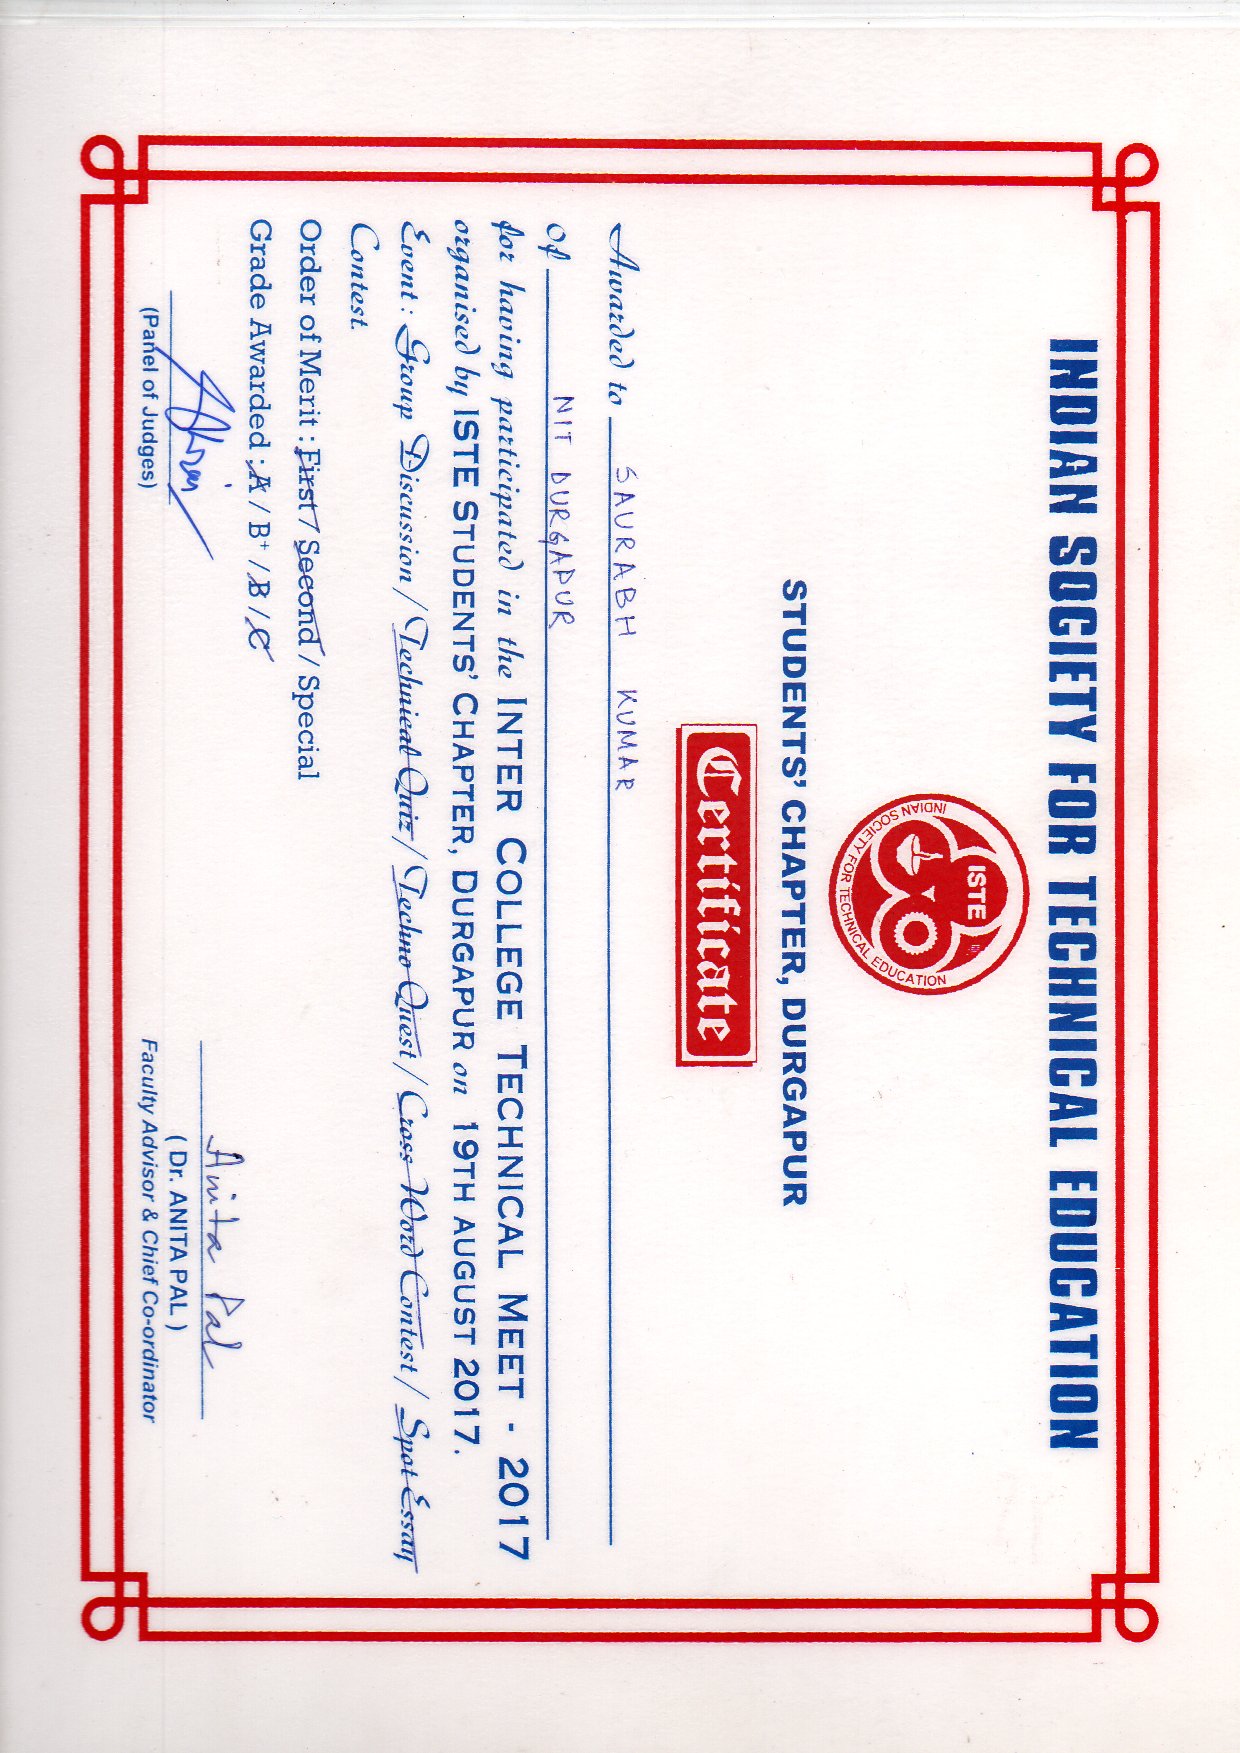 INDIAN SOCIETY FOR TECHNICAL EDUCATION
ISTE
INDIAN SOCIETY FOR TECHNICAL EDUCATION
STUDENTS' CHAPTER, DURGAPUR
Certificate
Awarded to SAURABH KUMAR
of NIT DURGAPUR
for having participated in the INTER COLLEGE TECHNICAL MEET - 2017
organised by ISTE STUDENTS' CHAPTER, DURGAPUR on 19TH AUGUST 2017.
Event : Group Discussion / Technical Quiz / Techno Quest / Cross Word Contest / Spot Essay
Contest.
Order of Merit : First / Second / Special
Grade Awarded : A / B+ / B / C
Anita Pal
(Panel of Judges)
( Dr. ANITA PAL )
Faculty Advisor & Chief Co-ordinator